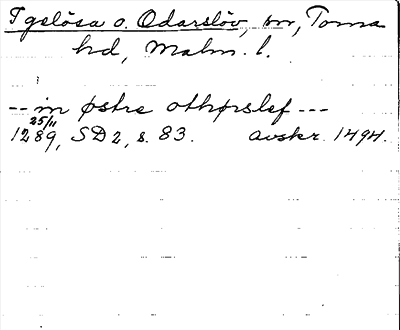 Igelösa o. Odarslöv, sn, Torna
hd, Malm. l.
-- in østre othørslef ---
25/11
1289, SD2, s. 83. avskr. 1494.